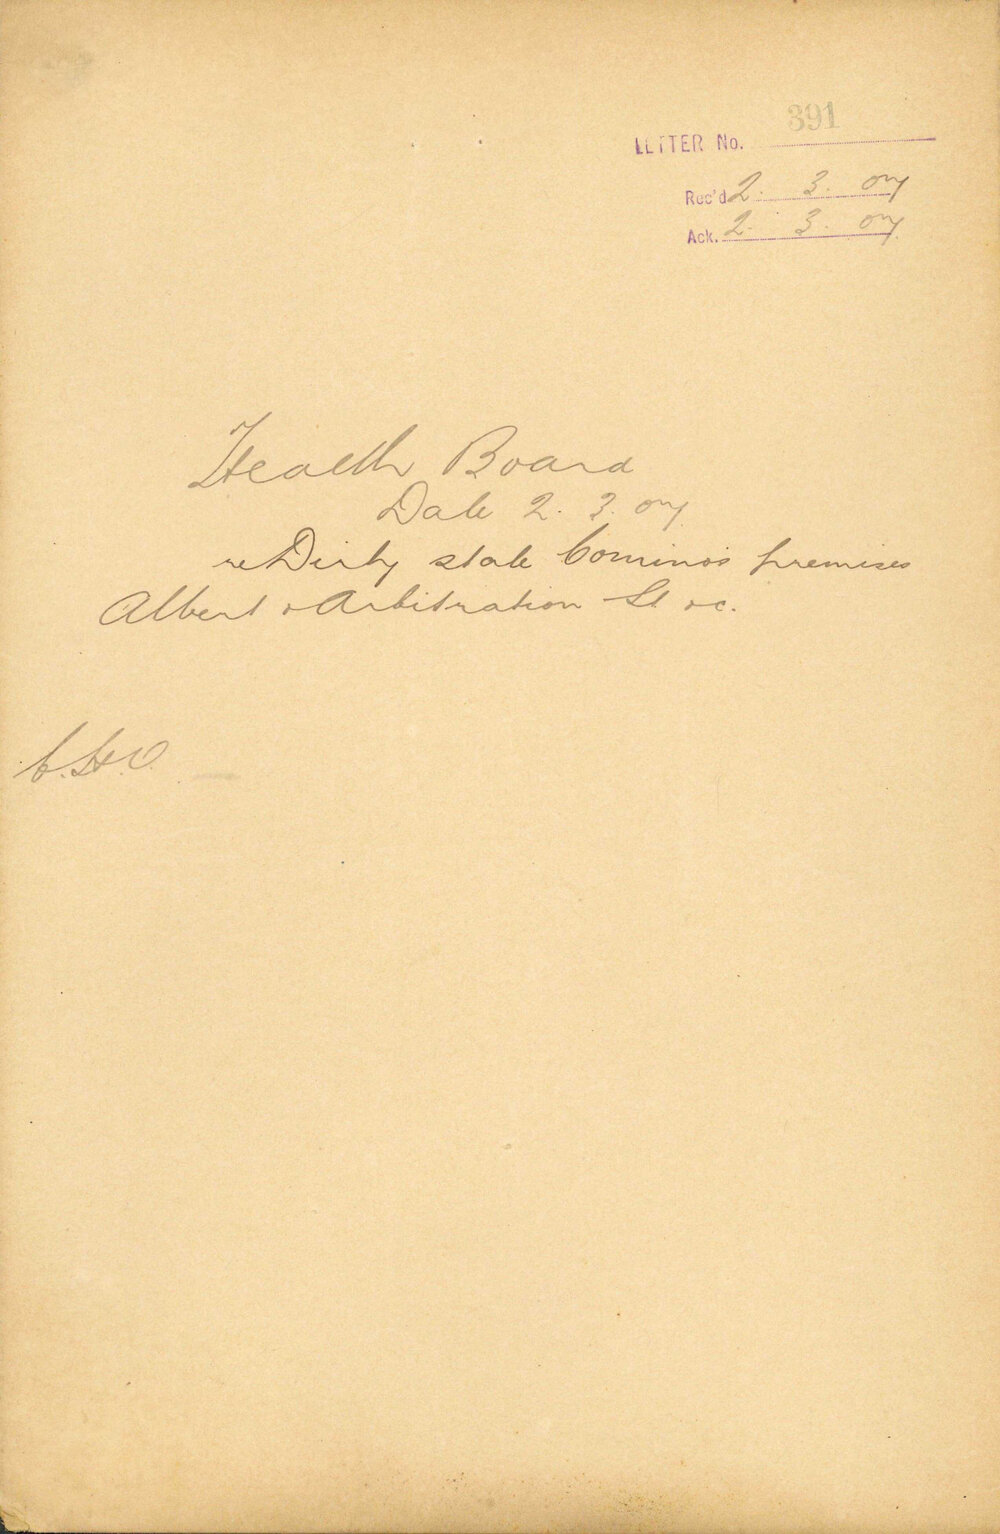 391
LETTER No.
Rec'd 2. 3. 07
Ack. 2. 3. 07
Health Board
Date 2. 3. 07
re Dirty state Comino's premises
Albert & Arbitration St &c.
C.H.O.